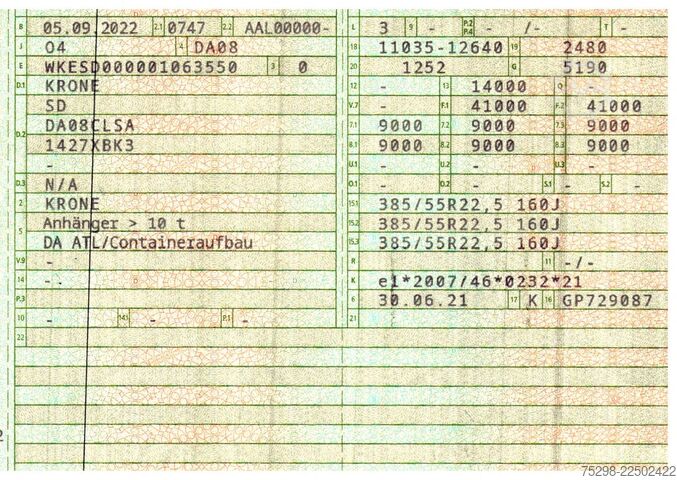 B 05.09.2022 2.1 0747 2.2 AAL00000- L 3 9 - P.2 P.4 - /- T -
J O4 4 DA08 18 11035-12640 19 2480
E WKESD000001063550 3 0 20 1252 G 5190
D.1 KRONE 12 - 13 14000 Q -
SD V.7 - F.1 41000 F.2 41000
D.2 DA08CLSA 7.1 9000 7.2 9000 7.3 9000
1427XBK3 8.1 9000 8.2 9000 8.3 9000
- U.1 - U.2 - U.3 -
D.3 N/A O.1 - O.2 - S.1 - S.2 -
2 KRONE 15.1 385/55R22,5 160J
5 Anhänger > 10 t 15.2 385/55R22,5 160J
DA ATL/Containeraufbau 15.3 385/55R22,5 160J
V.9 - R 11 -/-
14 -. K e1*2007/46*0232*21
P.3 6 30.06.21 17 K 16 GP729087
10 - 14.1 - P.1 - 21
22
2
75298-22502422